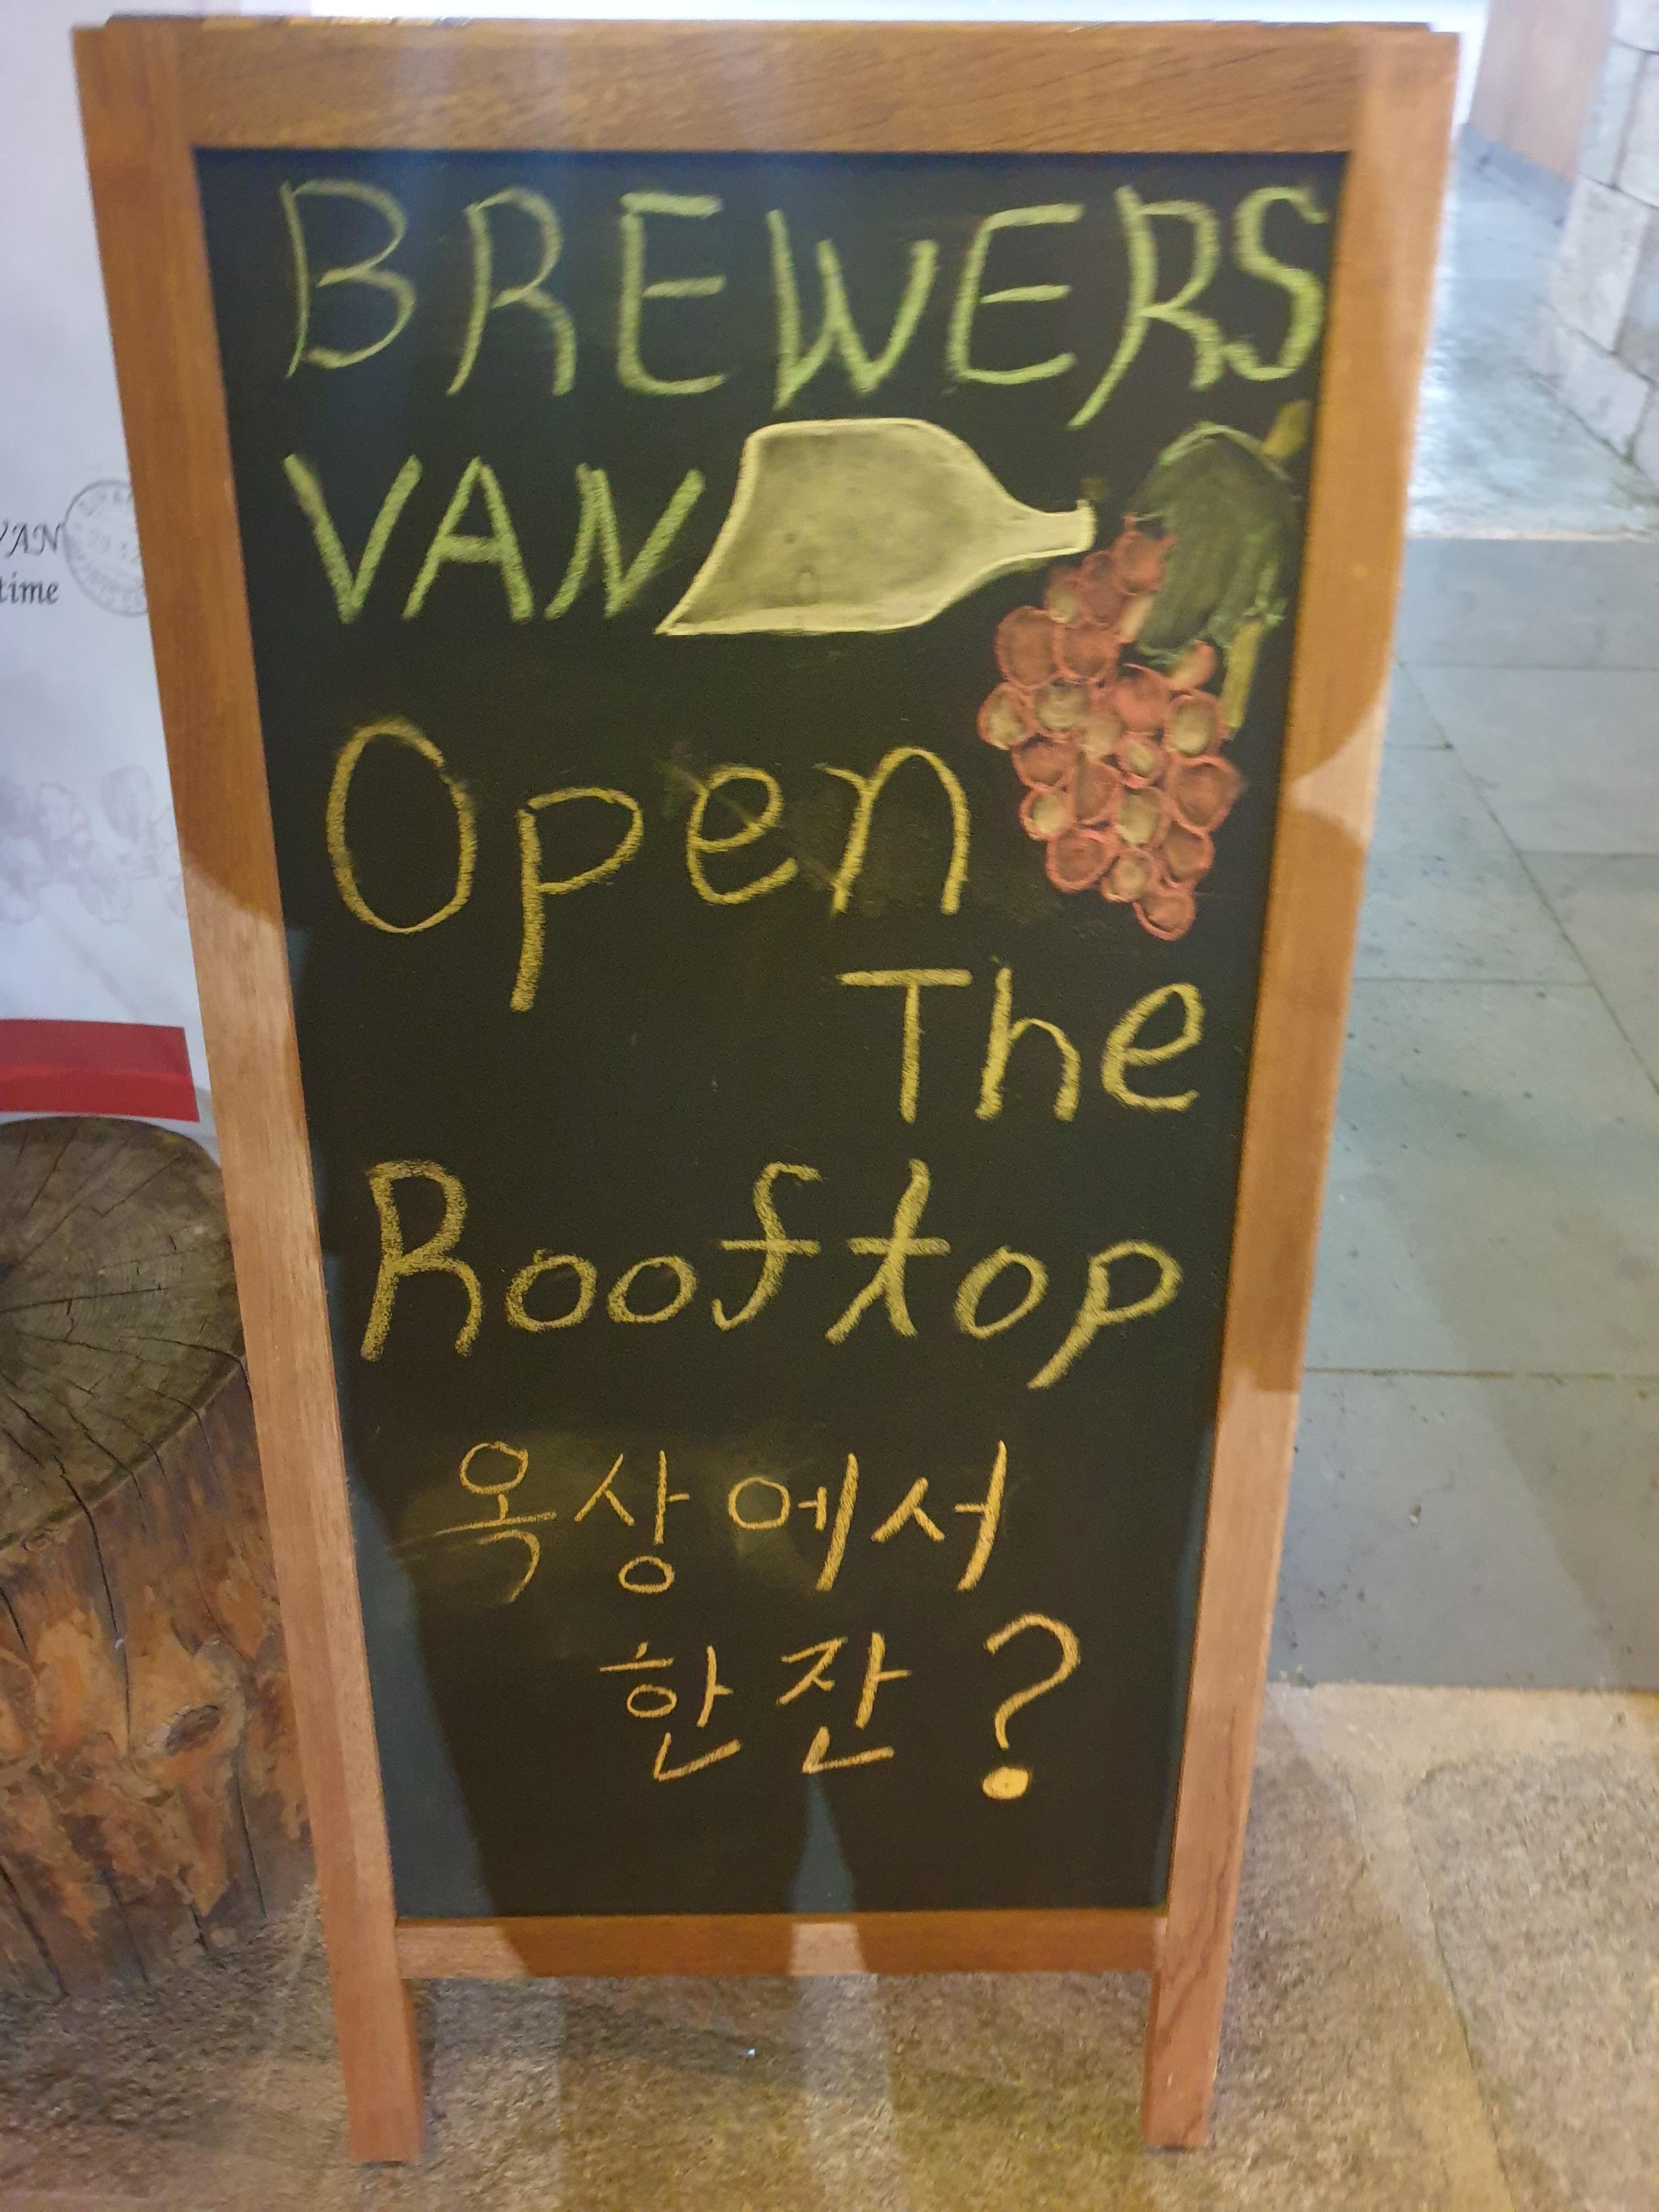 BREWERS
VAN
Open
The
Rooftop
옥상에서
한잔?
VAN
time